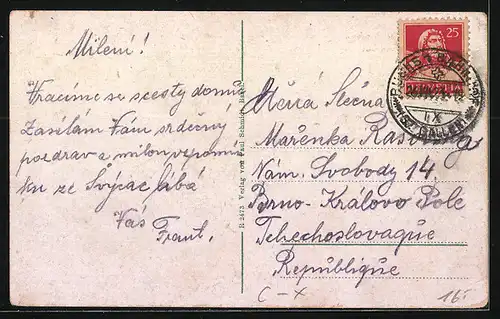 Milení!
Vracíme se scesty domů
Zasílám Vám srdečný
pozdrav a milou vzpomín
ku ze Švýcar líbá
Vás
Frant.
R 2473 Verlag von Paul Schmidt, Basel
25
BUCHS
(ST. GALLEN)
IX
Ctěná Slečna
Mařenka
Nám. Svobody 14.
Brno - Královo Pole
Tchechoslovaque
Republique
C - X
16.-